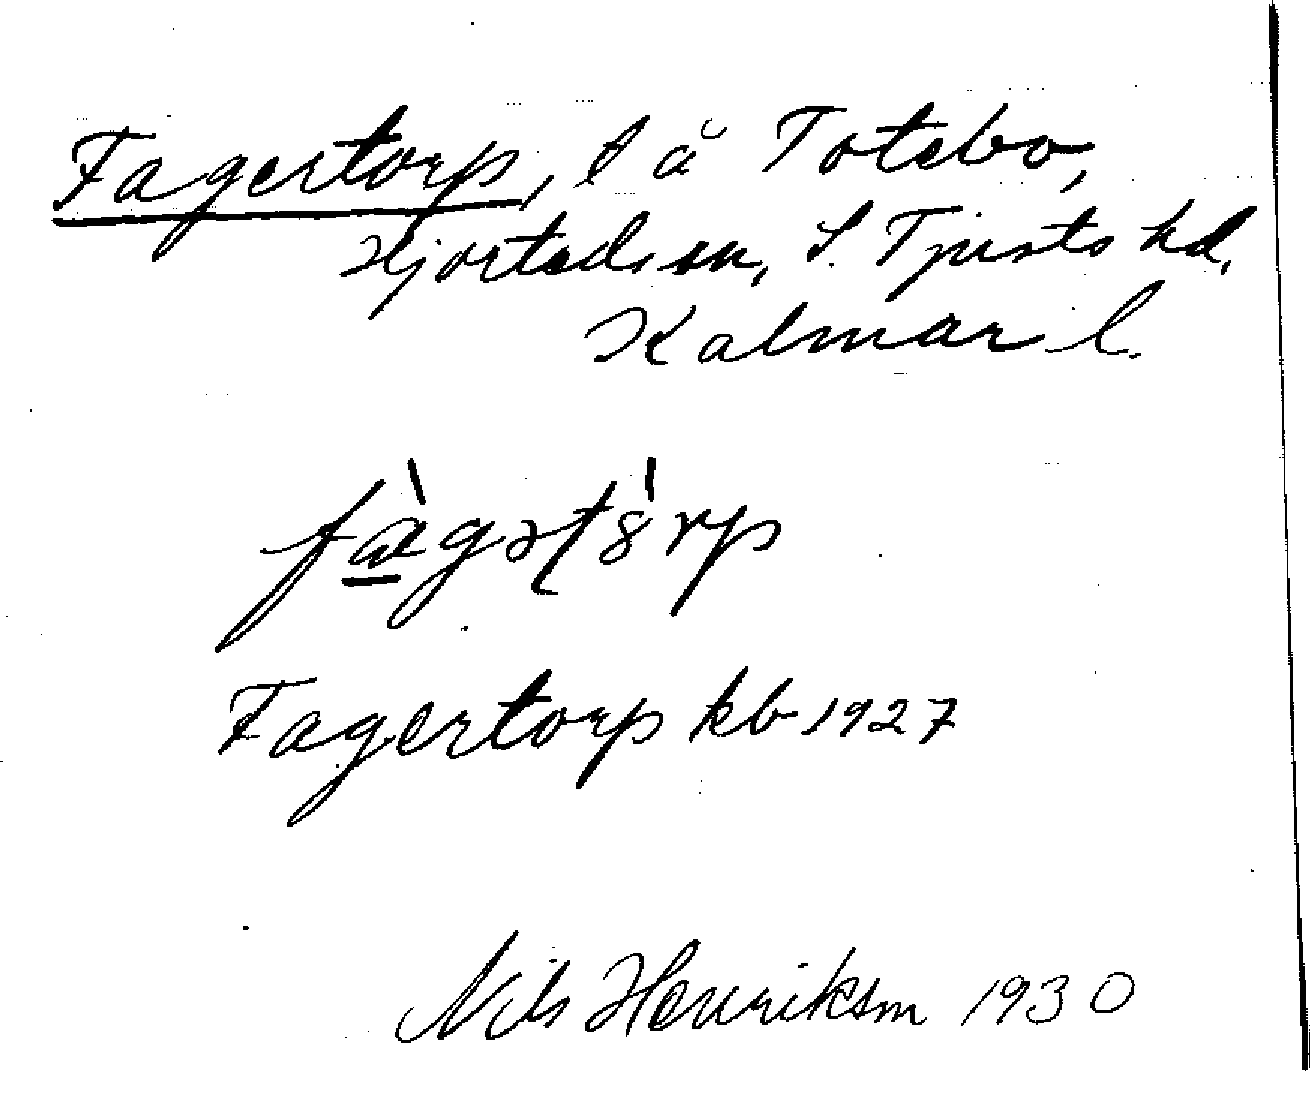 Fagertorp, t å Totebo,
Hjorteds sn, S. Tjusts hd,
Kalmar l.
Fagertorp kb 1927
Nils Henriksm 1930